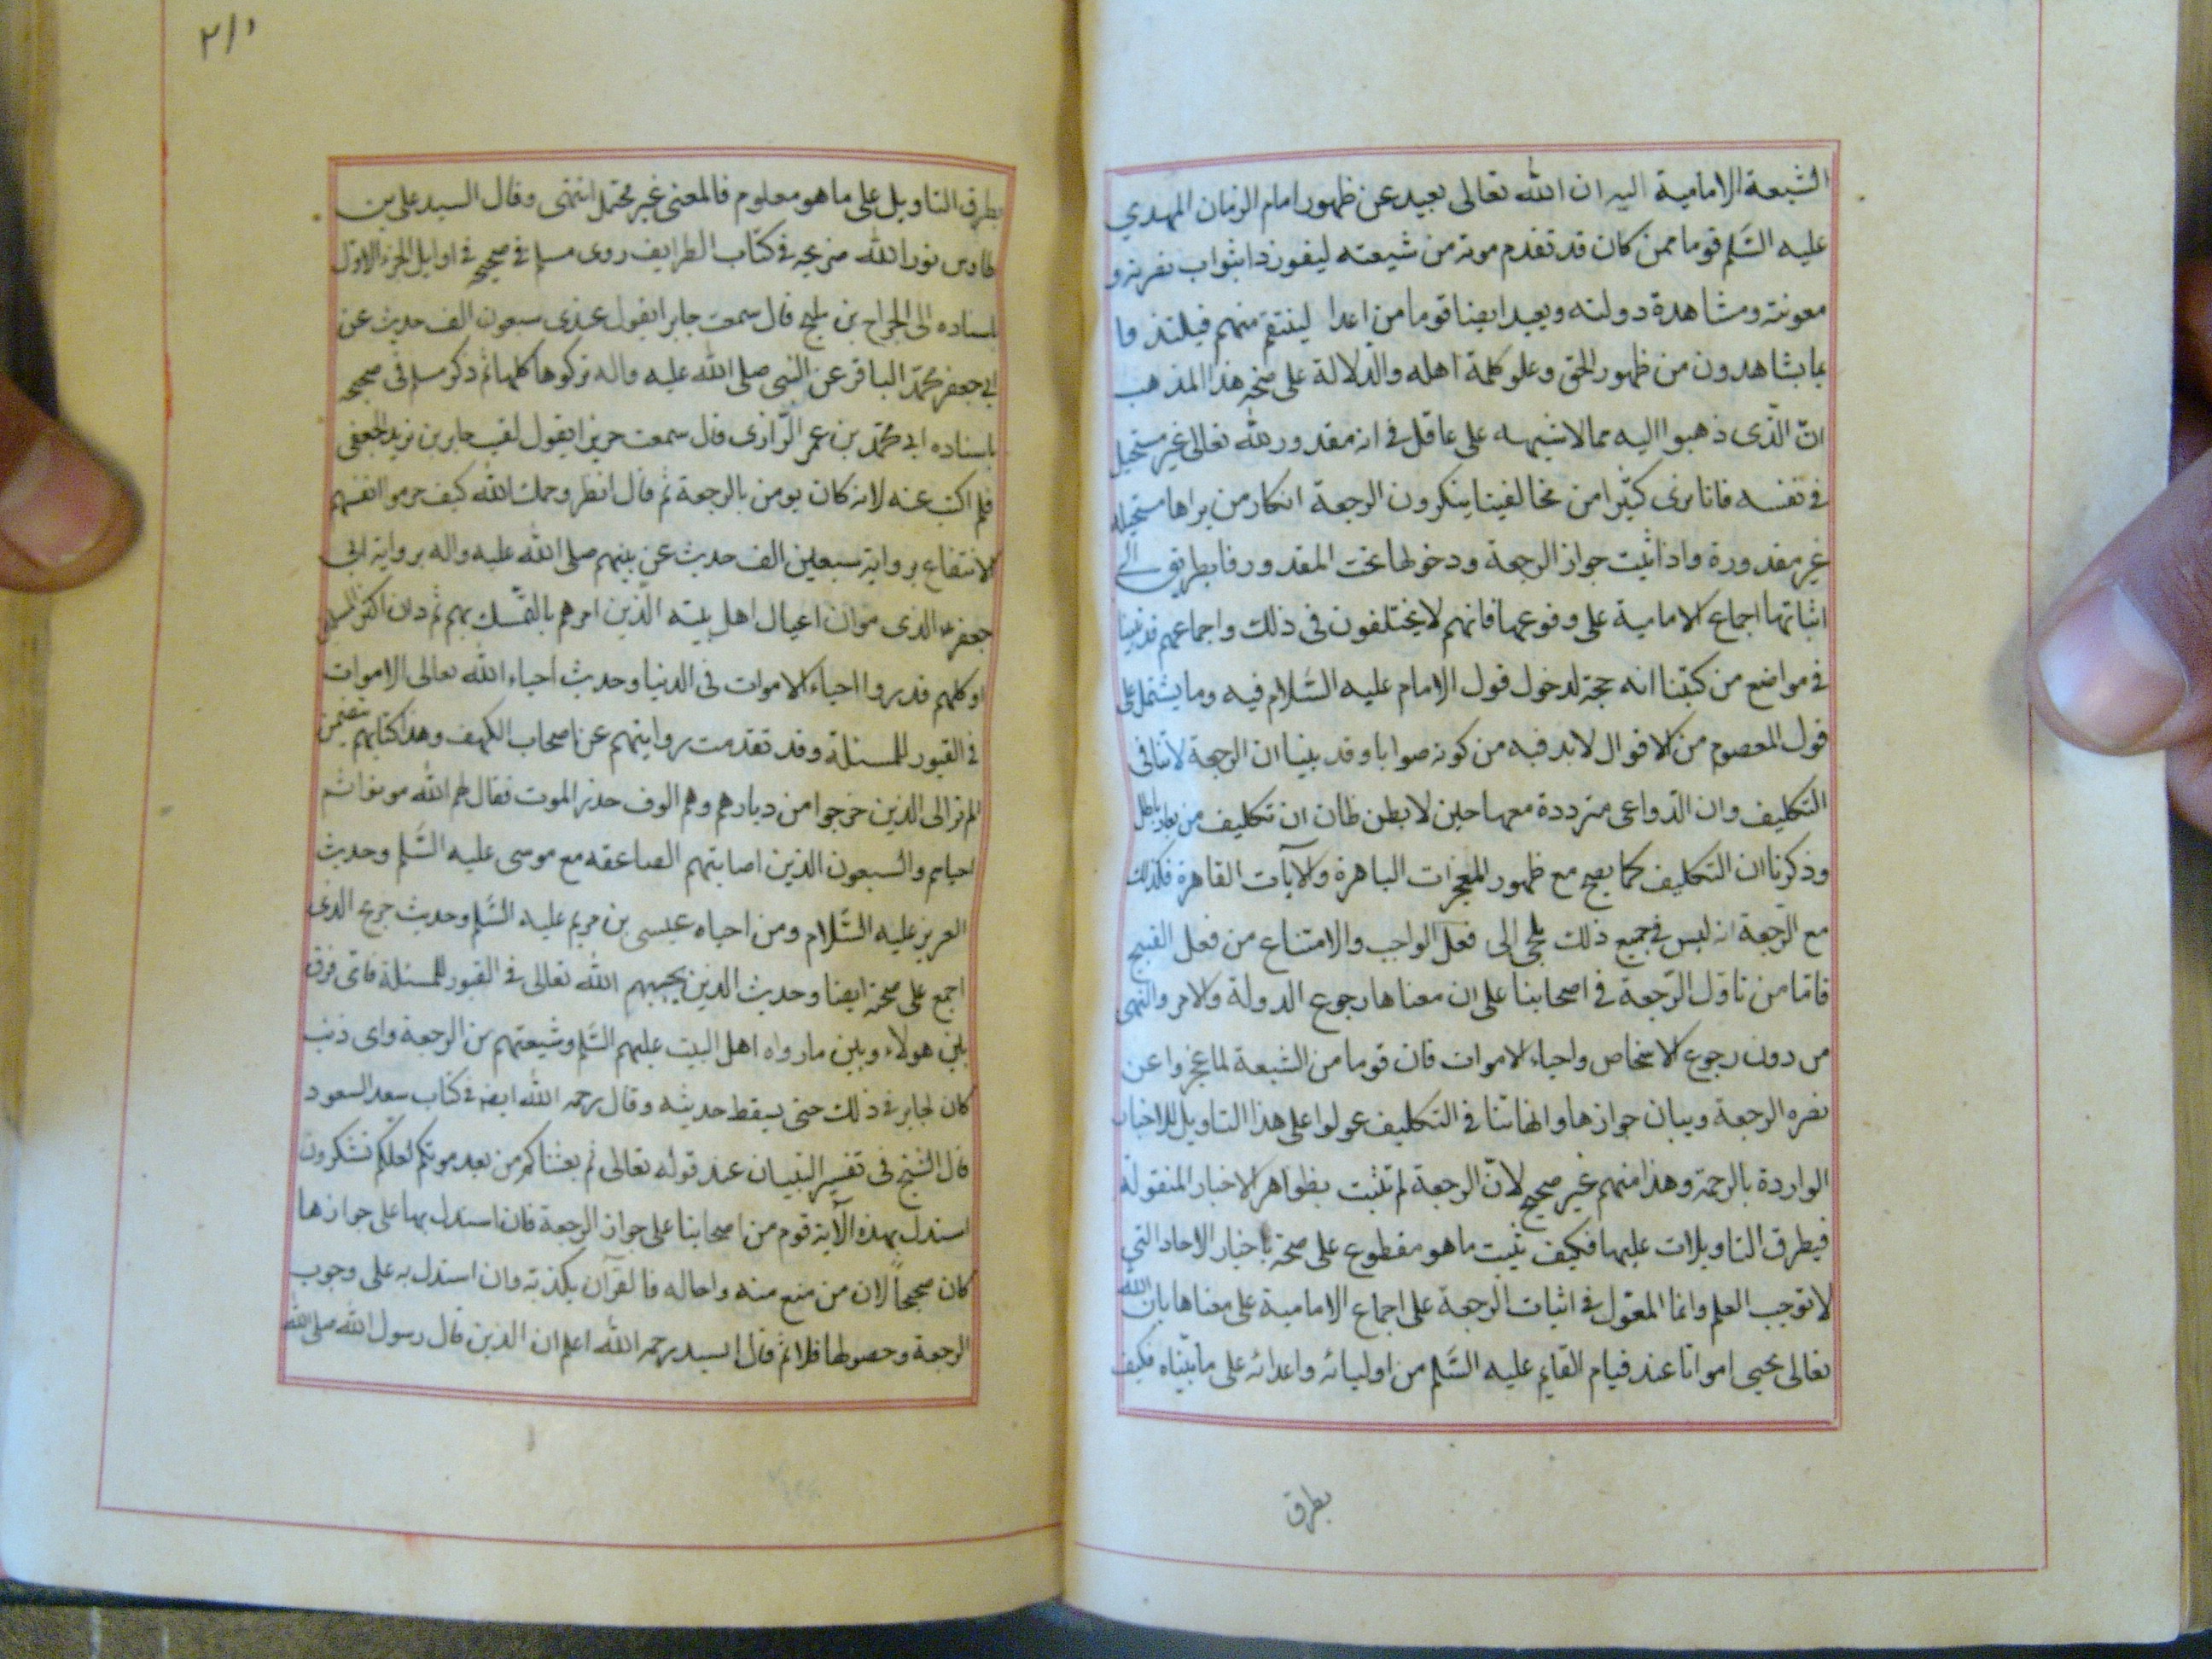 الشيعة الامامية اليه ان الله تعالى يعيد عن ظهور امام الزمان المهدي
عليه السّلم قوما ممن كان قد تقدم موته من شيعته ليفوزوا بثواب نصرته و
معونته ومشاهدة دولته ويعيد ايضا قوما من اعدا لينتقم منهم فيلتذ وا
بما يشاهدون من ظهور الحق وعلو كلمة اهله والدّلالة على صحة هذا المذهب
انّ الّذى ذهبوا اليه مما لا شبهه على عاقل فى انه مقدور لله تعالى غير مستحيل
فى نفسه فانا نرى كثيرا من مخالفينا ينكرون الرجعة انكار من يراها مستحيله
غير مقدورة واذا ثبت جواز الرجعة ودخولها تحت المقدور فا بطريق الى
اثباتها اجماع الامامية على وقوعها فانهم لا يختلفون فى ذلك واجماعهم قد بينا
فى مواضع من كتبنا انه حجة لدخول قول الامام عليه السّلام فيه وما يشتمل على
قول المعصوم من الاقوال لابد فيه من كونه صوابا وقد بينا ان الرجعة لا تنافى
التكليف وان الدّواعى مترددة معها حين لا يظن ظان ان تكليف من يعاد باطل
وذكرنا ان التكليف كما يصح مع ظهور المعجزات الباهرة والآيات القاهرة فكذلك
مع الرّجعة انه ليس فى جميع ذلك ملجى الى فعل الواجب والامتناع من فعل القبيح
فامّا من تاوّل الرّجعة فى اصحابنا على ان معناها رجوع الدولة والامر والنهى
من دون رجوع الاشخاص واحياء الاموات فان قوما من الشيعة لما عجزوا عن
نصره الرجعة وبيان جوازها وانها تنا فى التكليف عولوا على هذا التاويل للاخبار
الواردة بالرجمة وهذا منهم غير صحيح لانّ الرجعة لم تثبت بظواهر الاخبار المنقولة
فيطرق التاويلات عليها فكيف يثبت ما هو مقطوع على صحة باخبار الاحاد التي
لا توجب العلم وانما المعوّل فى اثبات الرجعة على اجماع الامامية على معناها بان الله
تعالى يحيى امواتا عند قيام القايم عليه السّلم من اوليائه واعدائه على ما بيّناه فكيف
بطرق
٢١٠
بطرق التاويل على ما هو معلوم فالمعنى غير محتمل انتهى وقال السيد على بن
طاوس نور الله ضريحه فى كتاب الطرايف روى مسلم فى صحيحه فى اوايل الجزء الاوّل
باسناده الى الجراح بن مليح قال سمعت جابرا يقول عندى سبعون الف حديث عن
ابى جعفر محمّد الباقر عن النبى صلى الله عليه واله تركوها كلها ثم ذكر مسلم فى صحيحه
باسناده الى محمّد بن عمر الرّازى قال سمعت حريزا يقول لقيت جابر بن يزيد الجعفى
فلم اكتب عنه لانه كان يومن بالرجعة ثم قال انظر رحمك الله كيف حرموا انفسهم
الانتفاع برواية سبعين الف حديث عن نبيهم صلى الله عليه واله برواية ابى
جعفر ع الذى هو ان اعيال اهل بيته الّذين امرهم بالتمّسك بهم ثم دان اكثر المسلمين
او كلهم قد رووا احياء الاموات فى الدنيا وحديث احياء الله تعالى الاموات
فى القبور للمسئلة وقد تقدمت روايتهم عن اصحاب الكهف وهذا كتابهم يتضمن
الم تر الى الذين خرجوا من ديارهم وهم الوف حذر الموت فقال لهم الله موتوا ثم
احياهم والسبعون الذين اصابتهم الصاعقه مع موسى عليه السّلم وحديث
العزيز عليه السّلام ومن احياه عيسى بن مريم عليه السّلم وحديث جريح الذى
اجمع على صحّة ايضا وحديث الذين يحييهم الله تعالى فى القبور للمسئلة فاى فرق
بين هولاء وبين ما رواه اهل البيت عليهم السّلم وشيعتهم من الرجعة واى ذنب
كان لجابر فى ذلك حتى يسقط حديثه وقال رحمه الله ايضا فى كتاب سعد السعود
قال الشيخ فى تفسير التبيان عند قوله تعالى ثم بعثناكم من بعد موتكم لعلكم تشكرون
استدل بهذه الآية قوم من اصحابنا على جواز الرجعة فان استدل بها على جوازها
كان صحيحاً لان من منع منه واحاله فالقرآن يكذبه وان استدل به على وجوب
الرجعة وحصولها فلا ثم قال السيد رحمه الله اعلم ان الذين قال رسول الله صلى الله